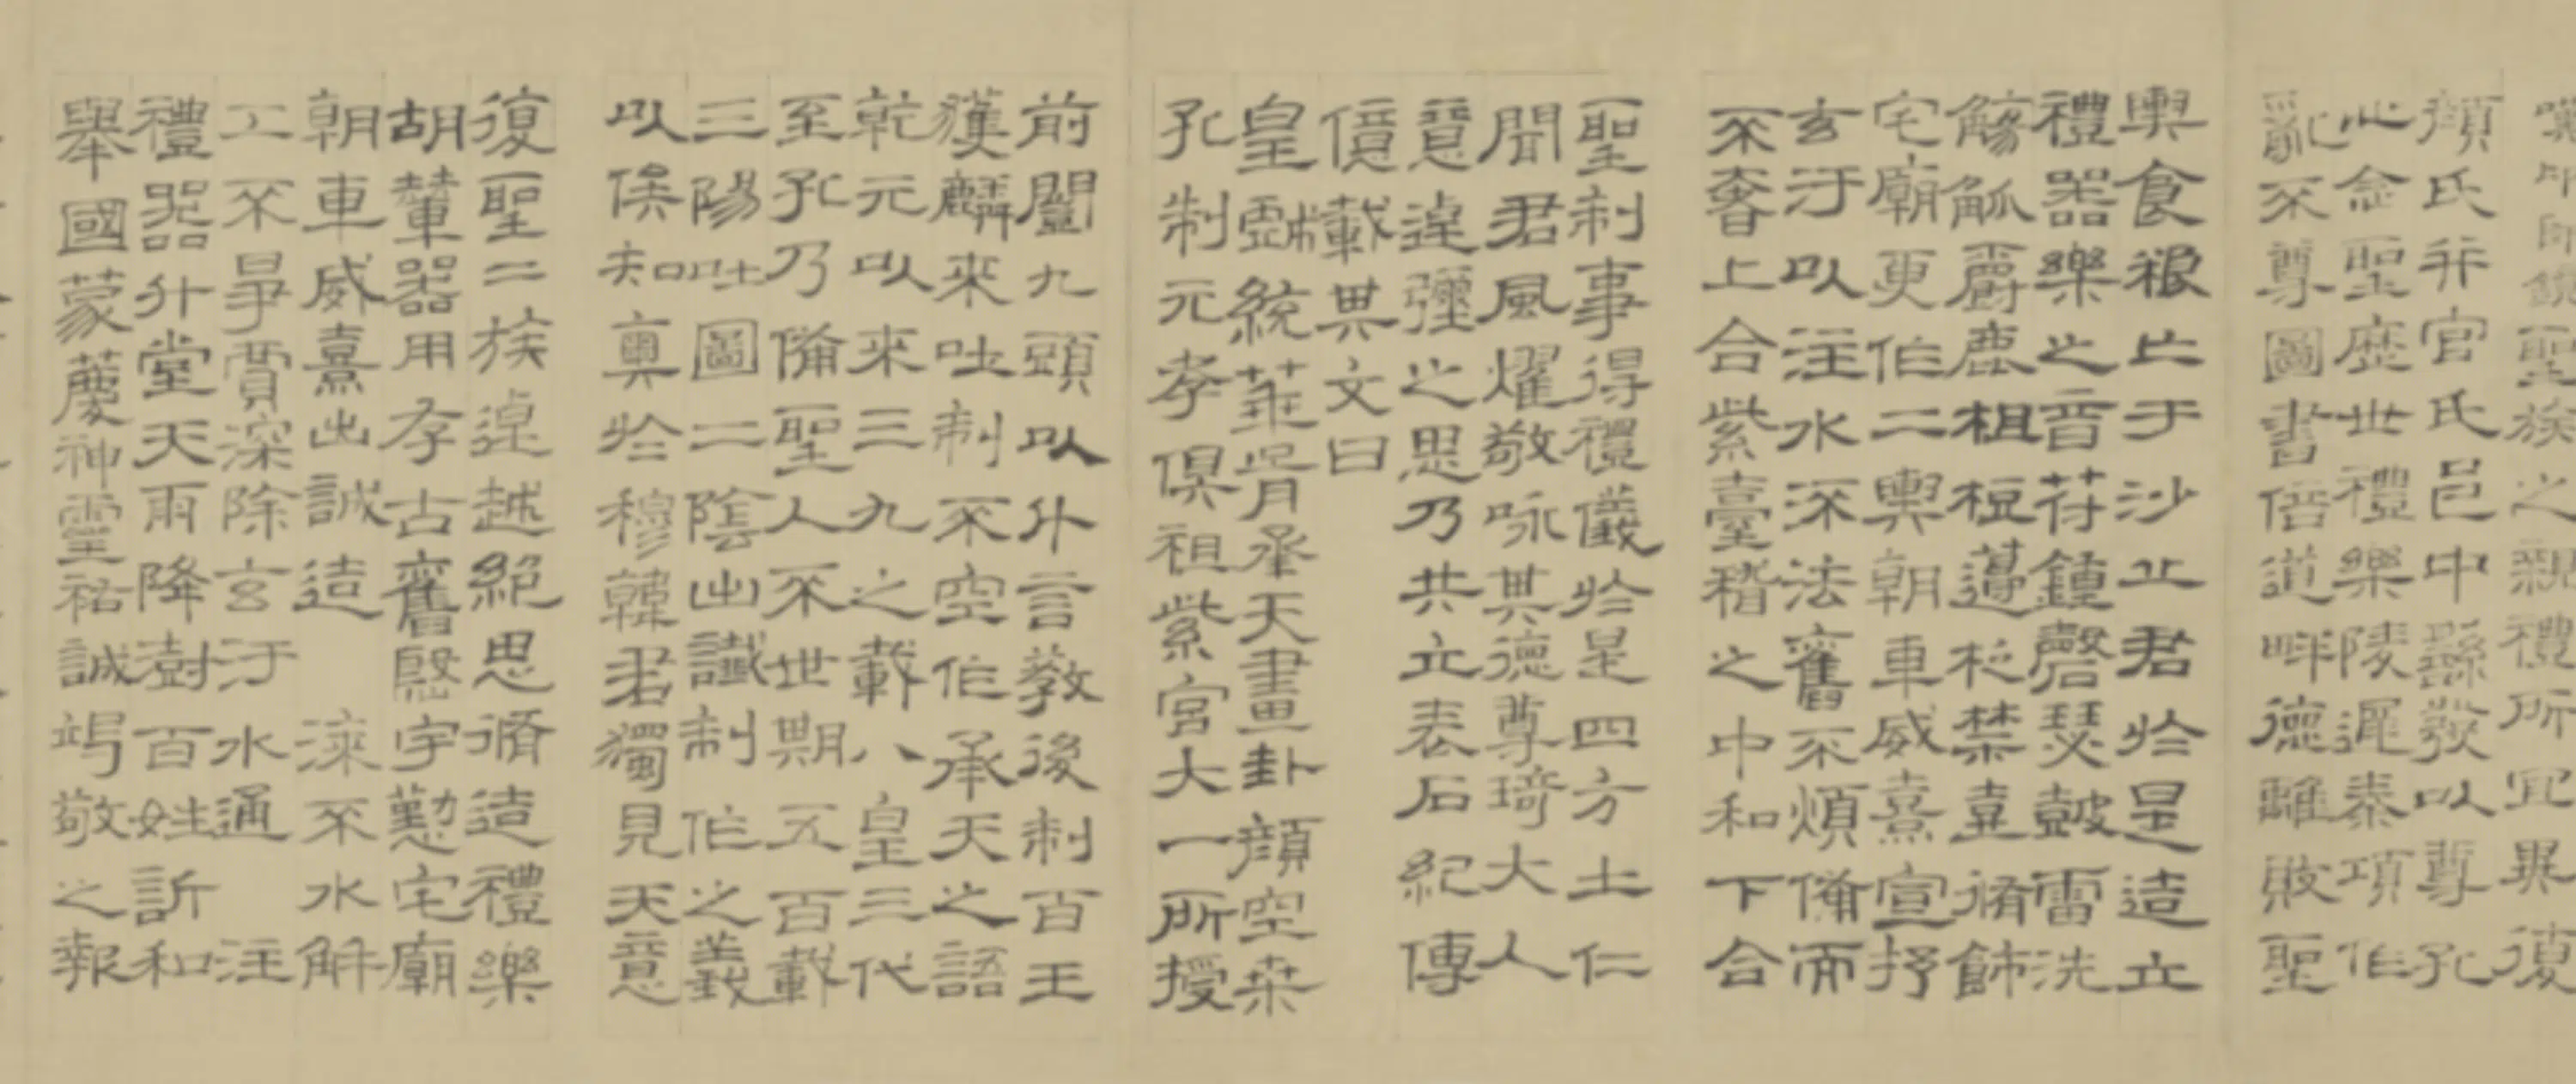 嘆卬師鏡聖族之親禮所宜異復
顏氏并官氏邑中繇發以尊孔
心念聖歷世禮樂陵遲秦項作
亂不尊圖書倍道畔德離敗聖
輿食粮亡于沙丘君於是造立
禮器樂之音苻鍾磬瑟鼓雷洗
觴觚爵鹿柤梪籩柉禁壺脩飾
宅廟更作二輿朝車威熹宣抒
玄汙以注水流法舊不煩備而
不奢上合紫臺稽之中和下合
聖制事得禮儀於是四方士仁
聞君風燿敬咏其德尊琦大人
意逴彌之思乃共立表石紀傳
億載其文曰
皇戲統華胥承天畫卦顏空桑
孔制元孝俱祖紫宮大一所授
前闓九頭以什言教後制百王
獲麟來吐制不空作承天之語
乾元以來三九之載八皇三代
至孔乃備聖人不世期五百載
三陽吐圖二陰出讖制作之義
以俟知奧於穆韓君獨見天意
復聖二族逴越絕思脩造禮樂
胡輦器用存古舊殷宇懃宅廟
朝車威熹出誠造漆不水解
工不爭賈深除玄汙水通注
禮器升堂天雨降澍百姓訢和
舉國蒙慶神靈祐誠竭敬之報